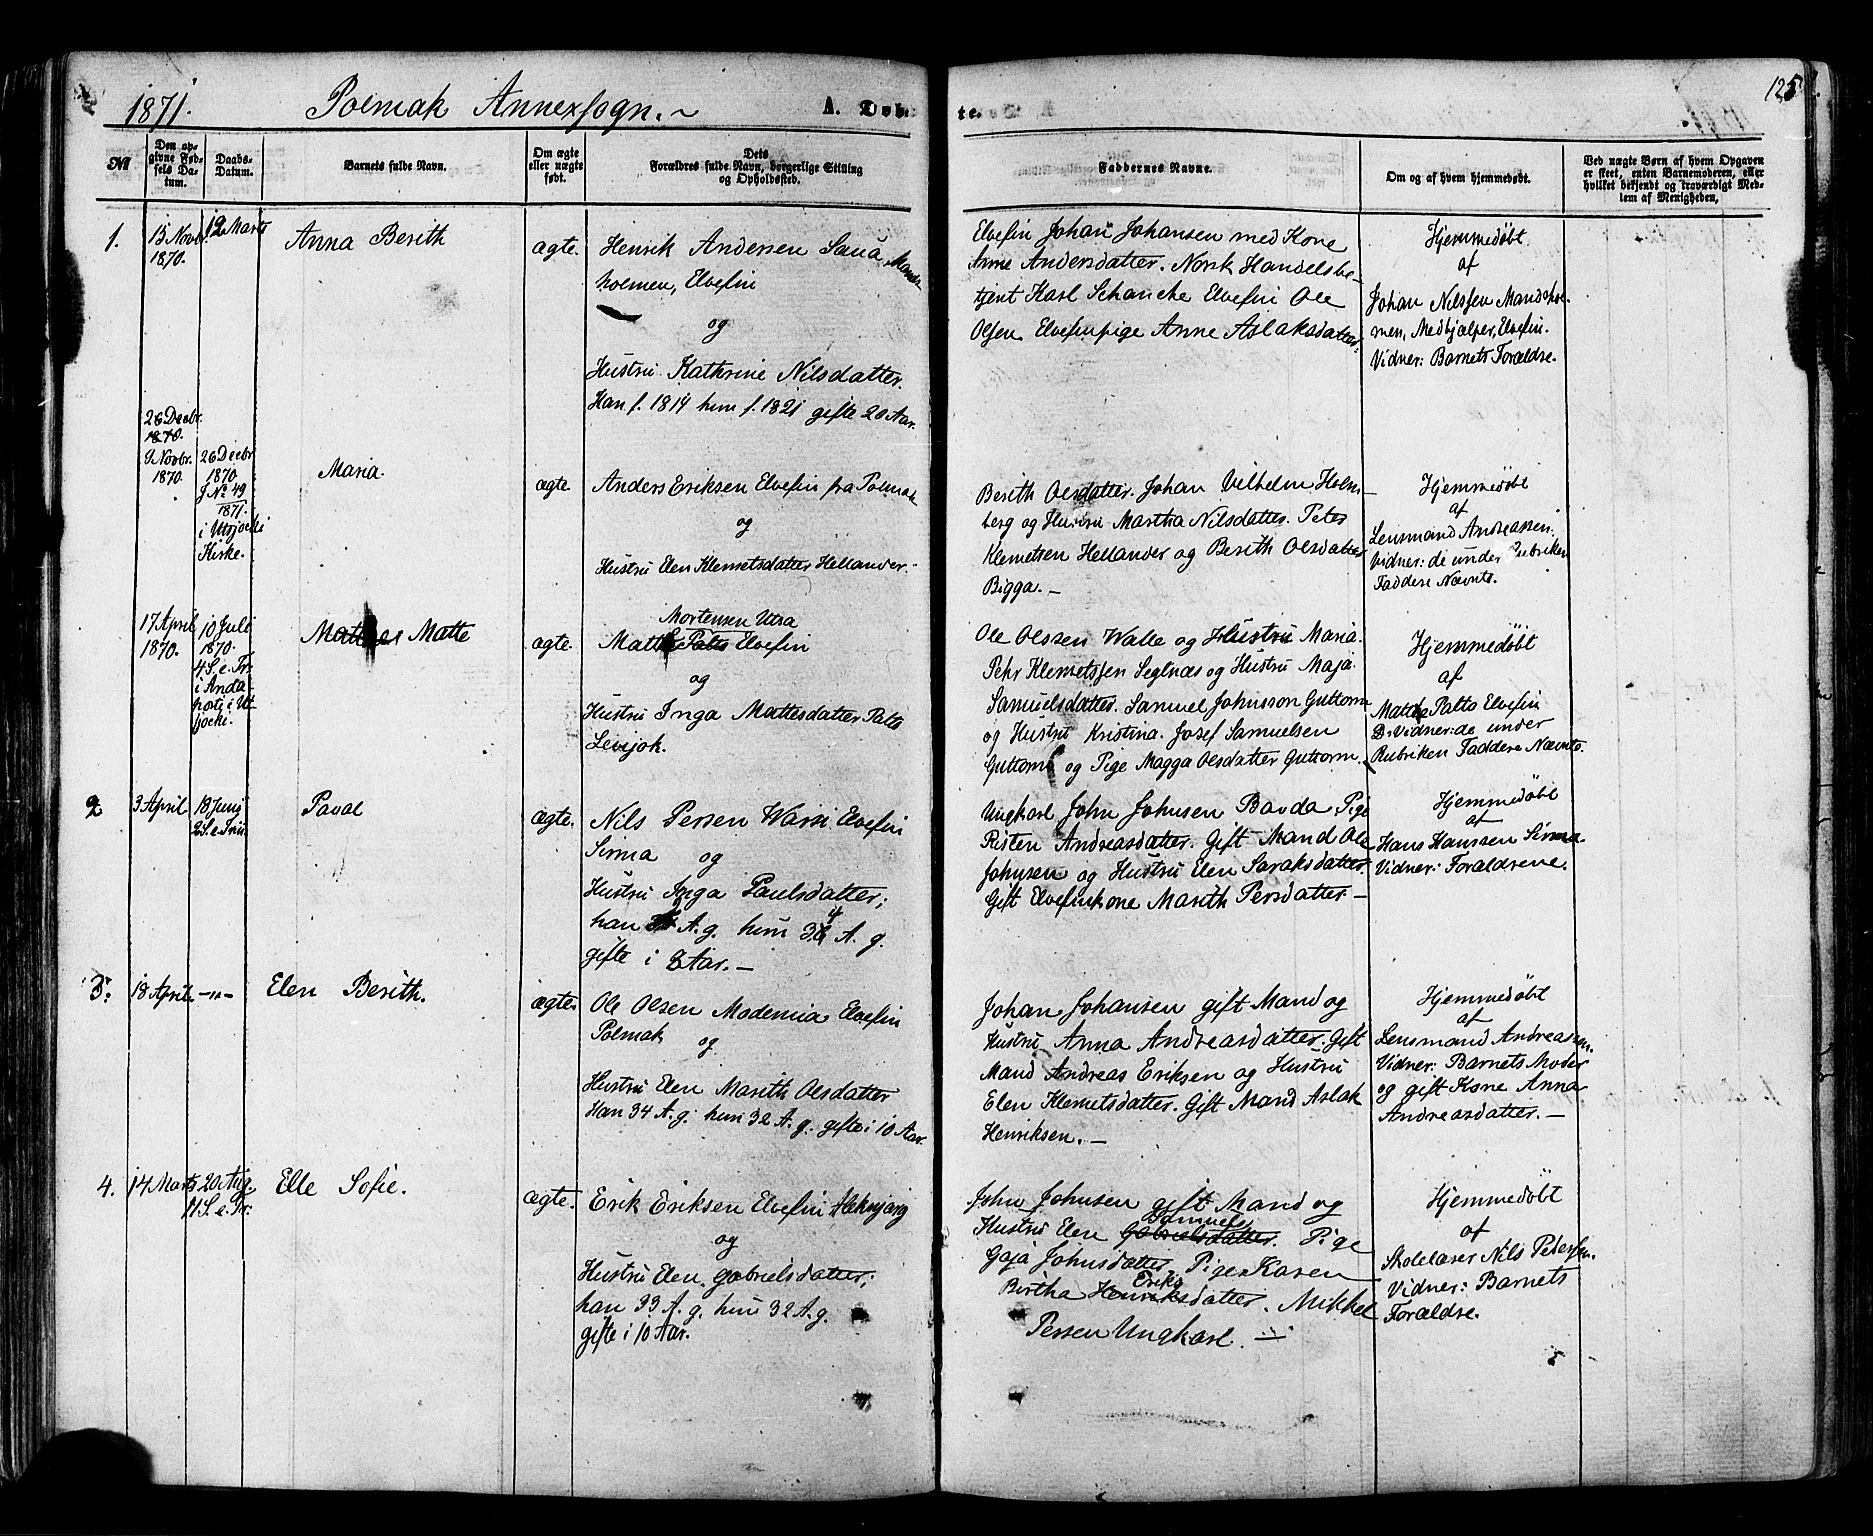 1871. Polmak Annexsogn. A. Døb- te. 125
No
Den op-
givne Fød-
sels Da-
tum.
Daabs-
Datum.
Barnets fulde Navn.
Om ægte
eller uægte
født.
Dets
Forældres fulde Navn, borgerlige Stilling
og Opholdssted.
Faddernes Navne.
Om og af hvem hjemmedøbt.
Ved uægte Børn af hvem Opgaven
er skeet, enten Barnemoderen, eller
hvilket bekjendt og troværdigt Med-
lem af Menigheden.
1.
15 Novbr.
1870.
12 Marts
Anna Berith
ægte.
Henrik Andersen Saua Mands-
holmen, Elvefin
og
Hustru Kathrine Nilsdatter.
Han f. 1814 hun f. 1821 gifte 20 Aar.
Elvefin Johan Johansen med Kone
Anne Andersdatter. Norsk Handelsbe-
tjent Karl Schanche Elvefin Ole
Olsen Elvefinpige Anne Aslaksdatter.
Hjemmedøbt
af
Johan Nilssen Mandshol-
men, Medhjælper, Elvefin.
Vidner: Barnets Forældre.
26 Decbr.
1870.
9 Novbr.
1870.
26 Decbr
1870
J No 49
1871.
i Utsjocki
Kirke.
Maria.
ægte.
Anders Eriksen Elvefin fra Polmak
og
Hustru Elen Klemetsdatter Hellander.
Berith Olsdatter. Johan Vilhelm Holm-
berg og Hustru Martha Nilsdatter. Peter
Klemetsen Hellander og Berith Olsdatter
Bigga. —
Hjemmedøbt
af
Lensmand Andreassen.
Vidner: de under Rubriken
Faddere Nævnte.
17 April
1870.
10 Juli
1870.
4 S. e. Tr.
i Anda-
hosti i Ut-
sjocki.
Matte
ægte.
Mortensen Utsa
Matte Palto Elvefin
og
Hustru Inga Mattesdatter Palto
Levijok.
Ole Olssen Walle og Hustru Maria.
Pehr Klemetssen Seglnæs og Hustru Maja
Samuelsdatter. Samuel Johnsson Guttorm
og Hustru Kristina. Josef Samuelsen
Guttorm og Pige Magga Olsdatter Guttorm.
Hjemmedøbt
af
Matte Palto Elvefin
Vidner: de under
Rubriken Faddere Nævnte.
2
3 April
18 Juni
2 S. e. Trin.
Paval
ægte.
Nils Persen Warsi Elvefin
Sirma og
Hustru Inga Paulsdatter;
han A. g. hun 34 A. g.
gifte i 8 Aar. —
Ungkarl John Johnsen Bavda Pige
Risten Andreasdatter. Gift Mand Ole
Johnsen og Hustru Elen Saraksdatter.
Gift Elvefinkone Marith Persdatter —
Hjemmedøbt
af
Hans Hanssen Sirma.
Vidner: Forældrene.
3.
18 April
—"—
Elen Berith.
ægte.
Ole Olsen Modemia Elvefin
Polmak og
Hustru Elen Marith Olsdatter
Han 34 A. g. hun 32 A. g. gifte i 10 Aar.
Johan Johansen gift Mand og
Hustru Anna Andreasdatter. Gift
Mand Andreas Eriksen og Hustru
Elen Klemetsdatter. Gift Mand Aslak
Henriksen. —
Hjemmedøbt
af
Lensmand Andreassen.
Vidner: Barnets Moder
og gift Kone Anna
Andreasdatter. —
4.
14 Marts
20 Aug.
11 S. e. Tr.
Elle Sofie.
ægte.
Erik Eriksen Elvefin Aleknjarg
og
Hustru Elen Gabrielsdatter;
han 33 A. g. hun 32 A. g.
gifte i 10 Aar.
John Johnsen gift Mand og
Samuels
Hustru Elen Gabrielsdatter. Pige
Gaja Johnsdatter Pige Karen
Eriks
Birtha Henriksdatter. Mikkel
Persen Ungkarl. —
Hjemmedøbt
af
Skolelærer Nils Petersen.
Vidner: Barnets
Forældre.